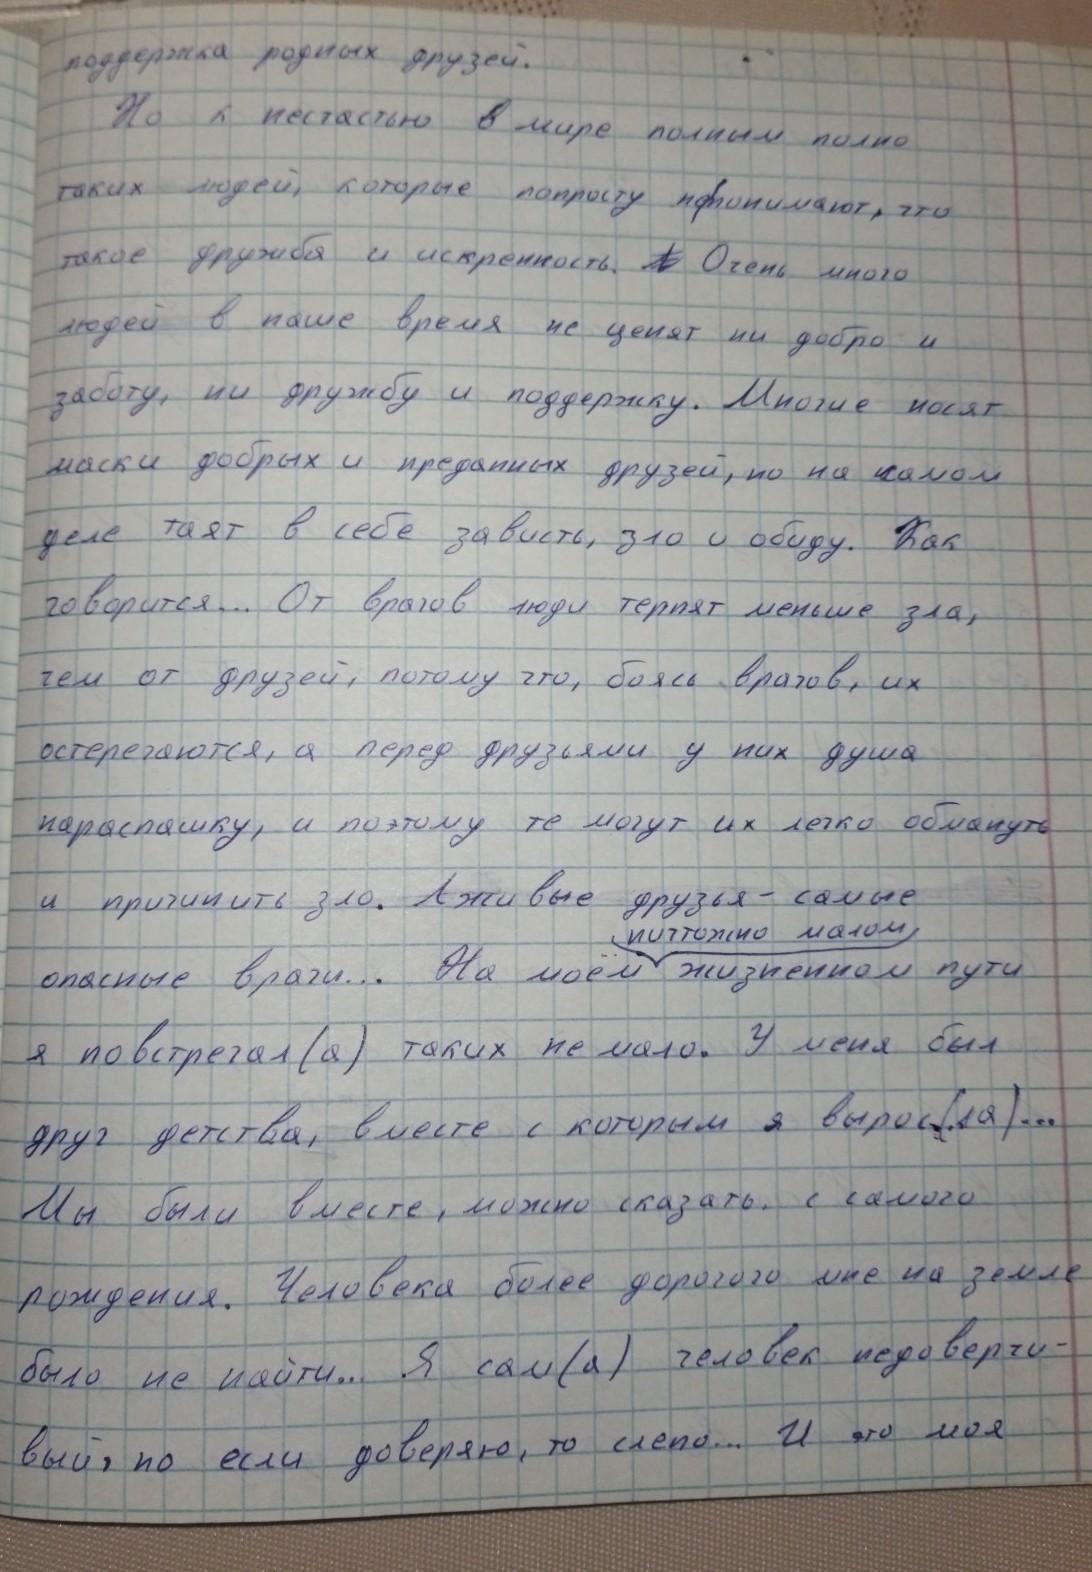 поддержка родных друзей.
Но к нестастью в мире полным полно
таких людей, которые попросту не понимают, что
такое дружба и искренность. Очень много
людей в наше время не ценят ни добро и
заботу, ни дружбу и поддержку. Многие носят
маски добрых и преданных друзей, но на самом
деле таят в себе зависть, зло и обиду. Как
говорится... От врагов люди терпят меньше зла,
чем от друзей, потому что, боясь врагов, их
остерегаются, а перед друзьями у них душа
нараспашку, и поэтому те могут их легко обмануть
и причинить зло. Лживые друзья - самые
ничтожно малом
опасные враги... На моём жизненном пути
я повстречал(а) таких не мало. У меня был
друг детства, вместе с которым я вырос(ла)...
Мы были вместе, можно сказать, с самого
рождения. Человека более дорогого мне на земле
было не найти... Я сам(а) человек недоверчи-
вый, но если доверяю, то слепо... И это моя